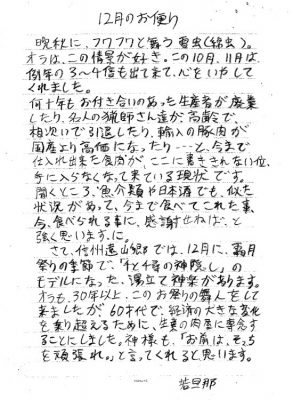 12月のお便り
晩秋に、フワフワと舞う雪虫(綿虫)。
オラは、この情景が好き。この10月、11月は
例年の3〜4倍も出て来て、心をいやして
くれました。
何十年もお付き合いのあった生産者が廃業
したり、名人の猟師さん達が高齢で、
相次いで引退したり、輸入の豚肉が
国産より高価になったり・・・と、今まで
仕入れ出来た食肉が、ここに書ききれない位、
手に入らなくなって来ている現状です。
聞くところ、魚介類や日本酒でも、似た
状況があって、今まで食べてこれた事、
今、食べられる事に、感謝せねば、と
強く思います。に。
さて、信州遠山郷では、12月に、霜月
祭りの季節で、「千と千尋の神隠し」の
モデルになった、湯立て神楽があります。
オラも、30年以上、このお祭りの舞人をして
来ましたが、60才代で、経済の大きな変化
を乗り超えるために、生業の肉屋に専念す
ることにしました。神様も、「お前は、そっち
を頑張れ。」と言ってくれると思います。
若旦那